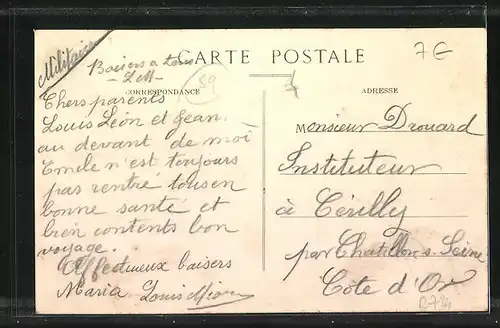 Militaire
Baisers a tous
CARTE POSTALE
7€
89
CORRESPONDANCE
ADRESSE
Chers parents
Louis Léon et Jean
au devant de moi
Emile n'est toujours
pas rentré tous en
bonne santé et
bien contents bon
voyage.
Affectueux baisers
Maria Louis
Monsieur Drouard
Instituteur
à Cérilly
par Chatillon s-Seine
Côte d'Or